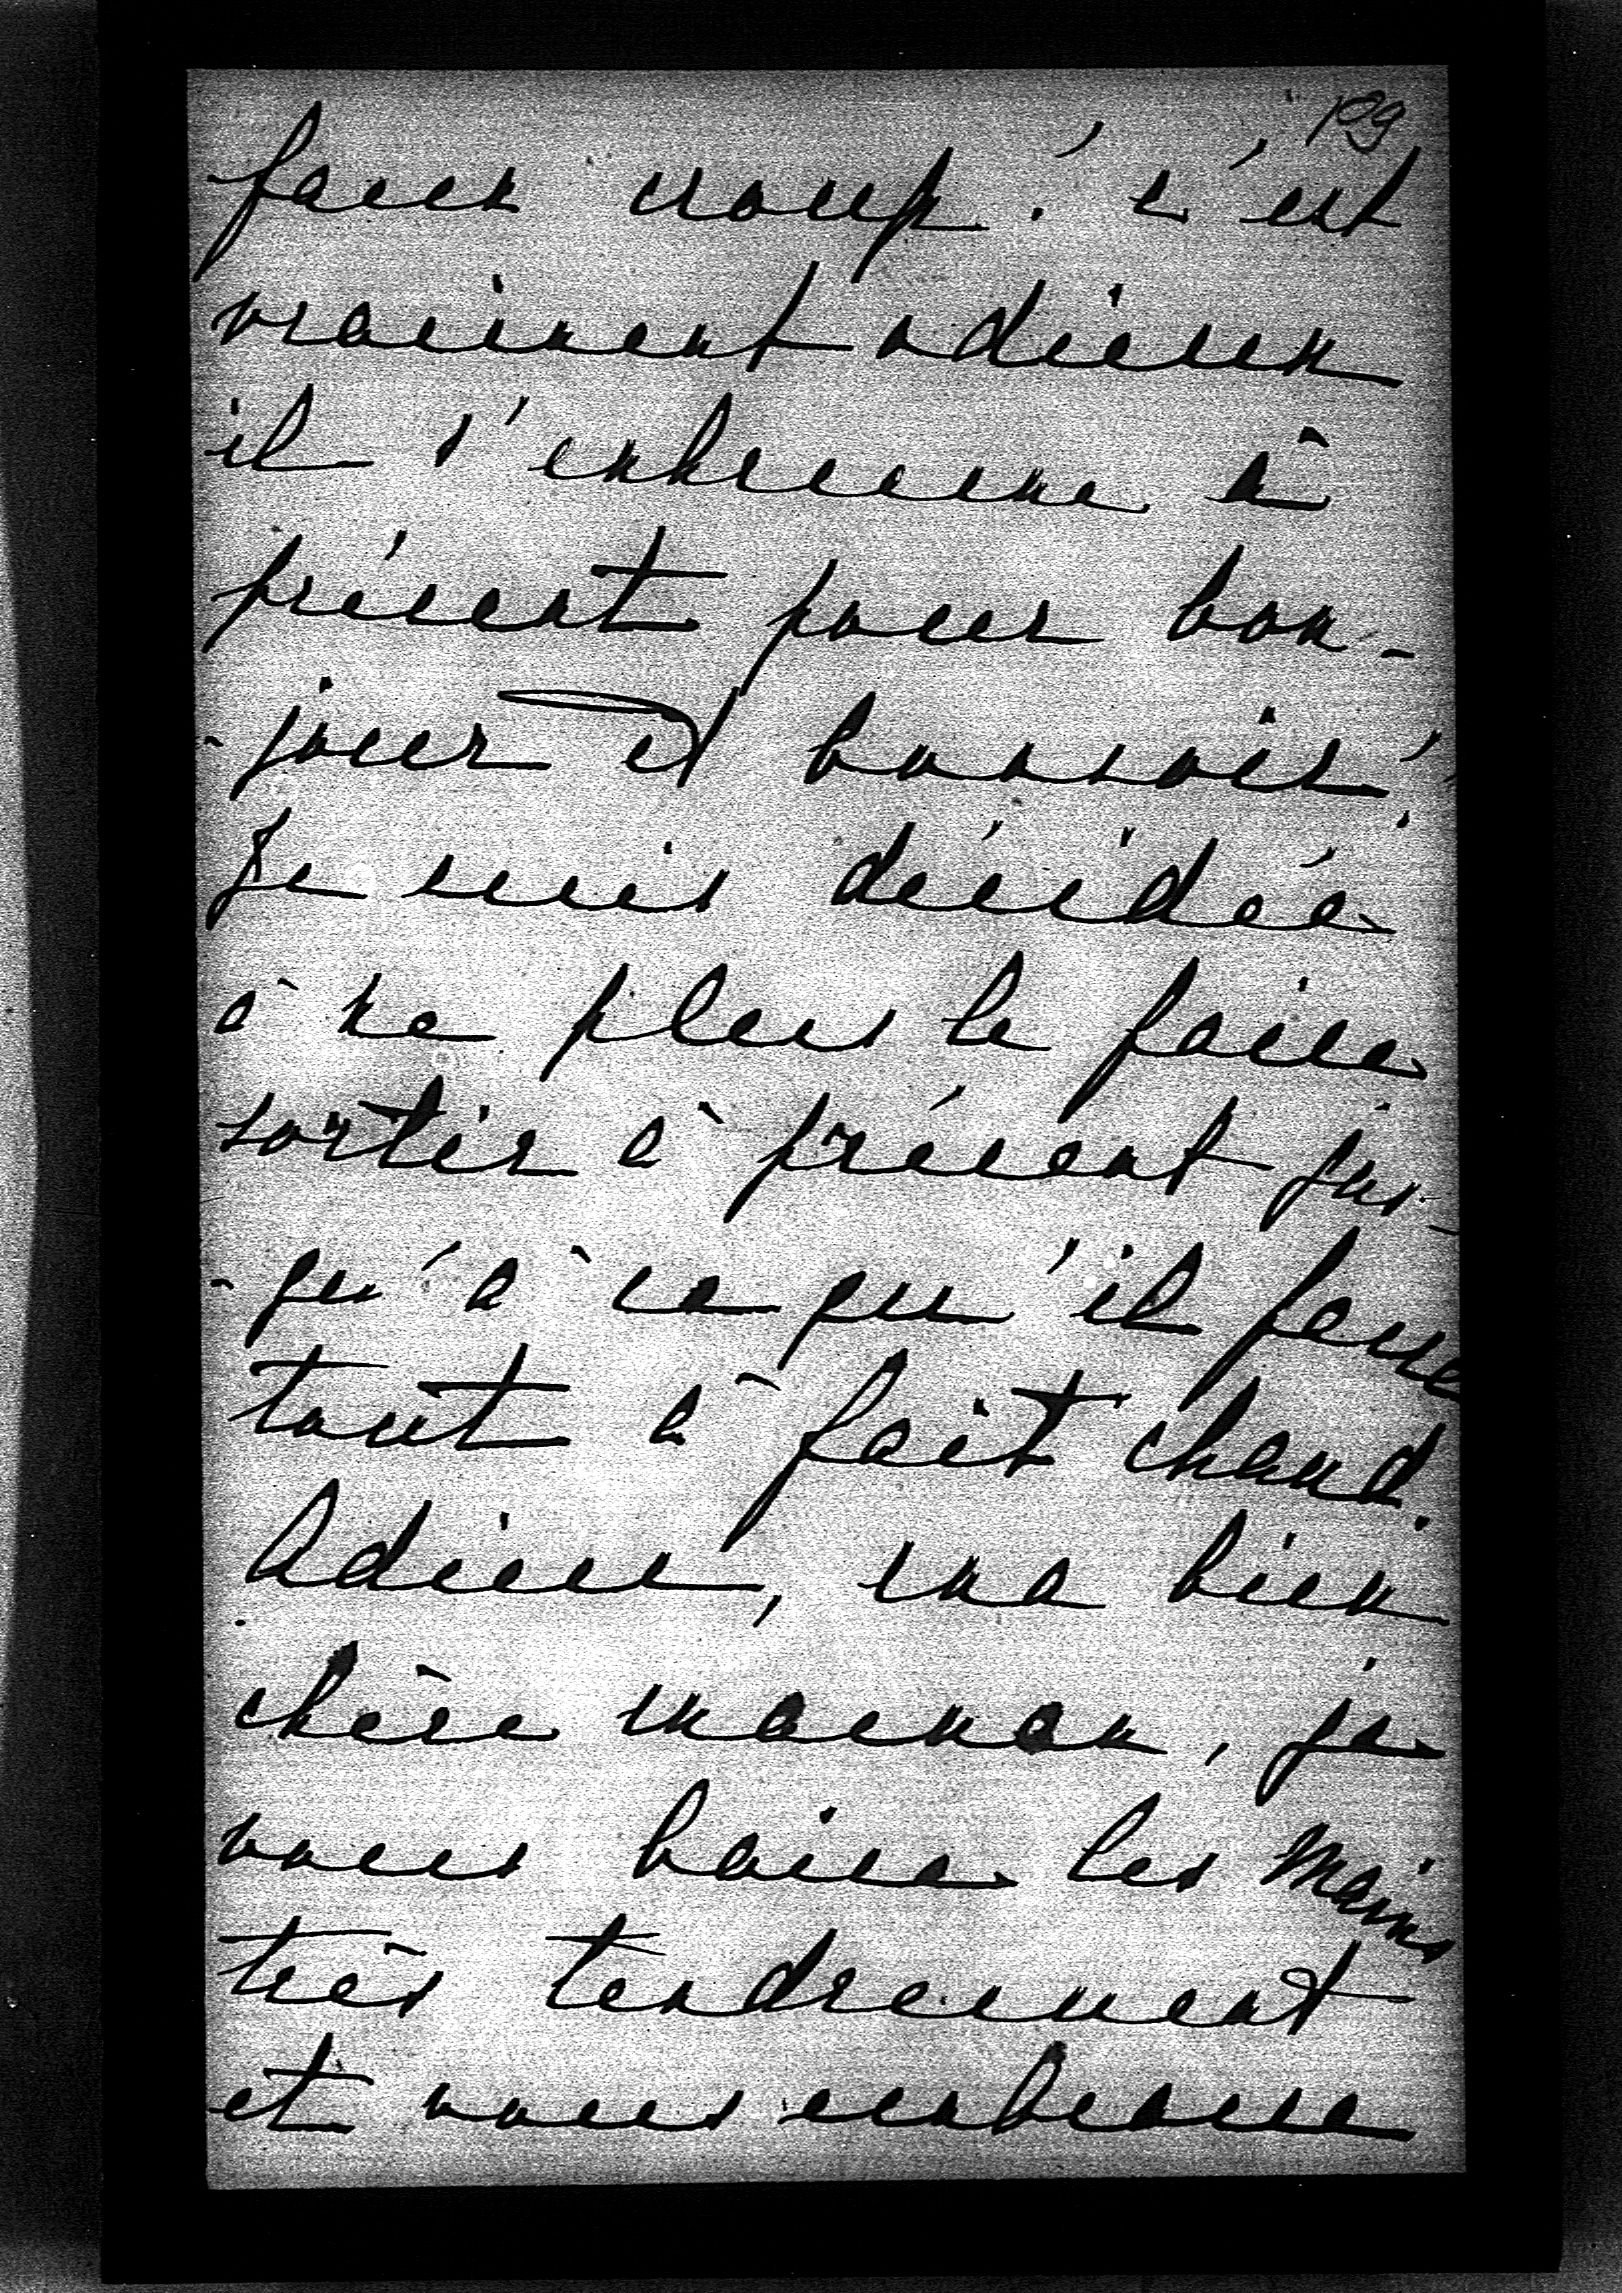 109
faux croup! c'est
vraiment odieux
il s'enhrume à
présent pour bon-
-jour et bonsoir!
Je suis décidée
à ne plus le faire
sortir à présent jus-
-qu'à ce qu'il fasse
tout à fait chaud.
Adieu, ma bien
chère maman, je
vous baise les mains
très tendrement
et vous embrasse